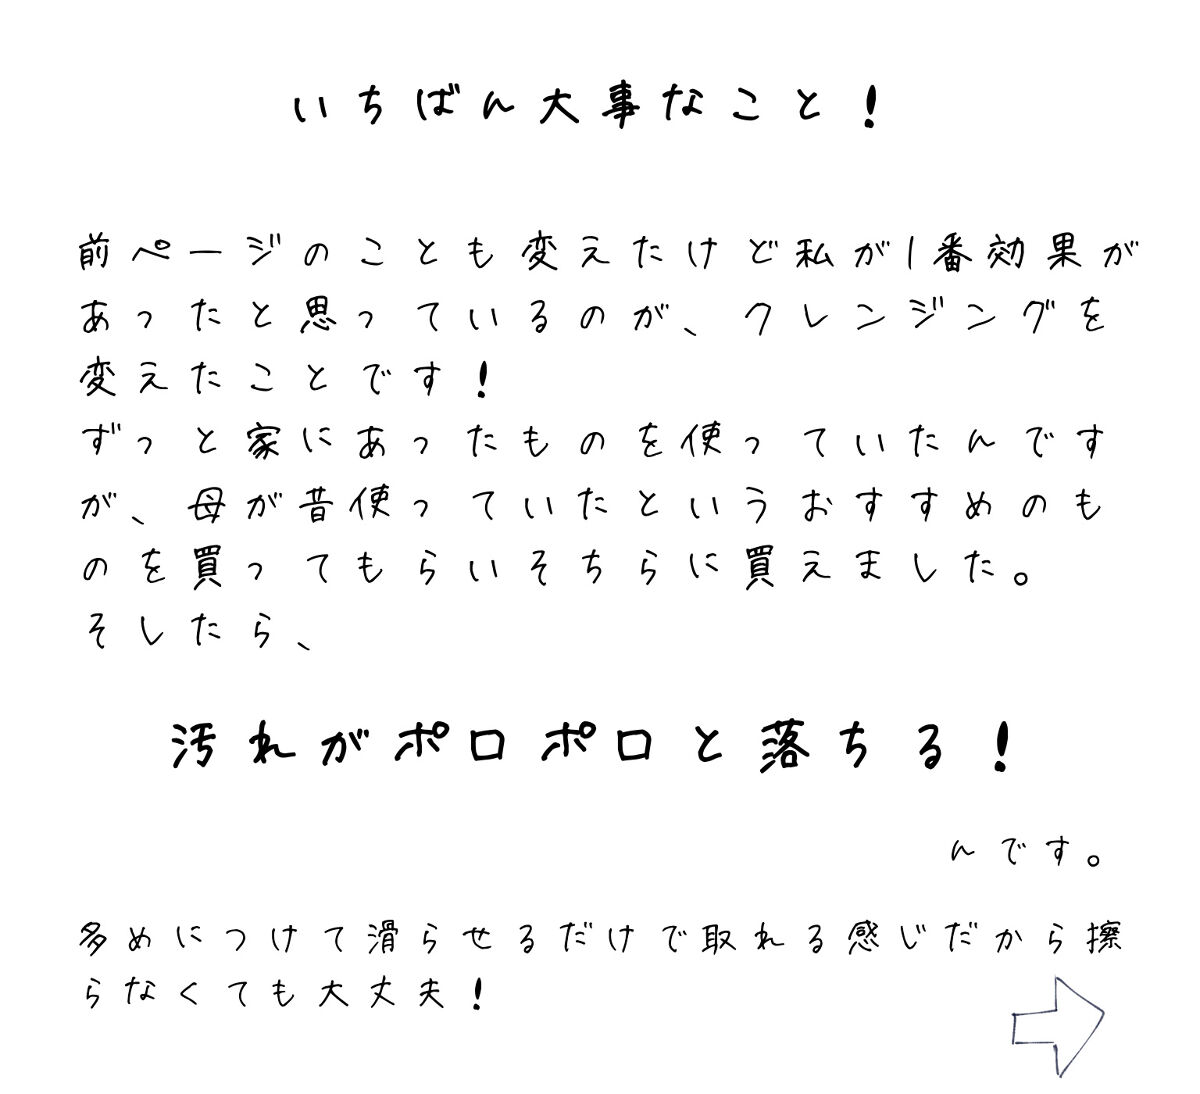 いちばん大事なこと！
前ページのことも変えたけど私が1番効果が
あったと思っているのが、クレンジングを
変えたことです！
ずっと家にあったものを使っていたんです
が、母が昔使っていたというおすすめのも
のを買ってもらいそちらに買えました。
そしたら、
汚れがポロポロと落ちる！
んです。
多めにつけて滑らせるだけで取れる感じだから擦
らなくても大丈夫！